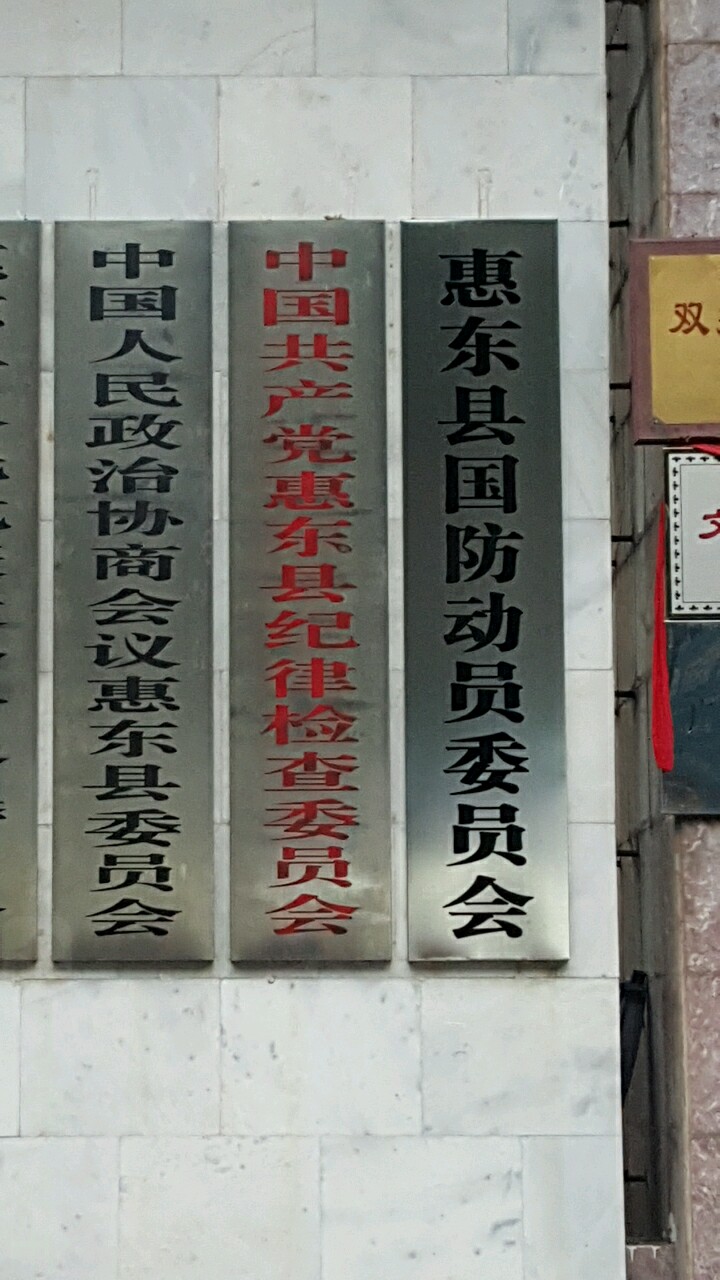 中国人民政治协商会议惠东县委员会
中国共产党惠东县纪律检查委员会
惠东县国防动员委员会
双